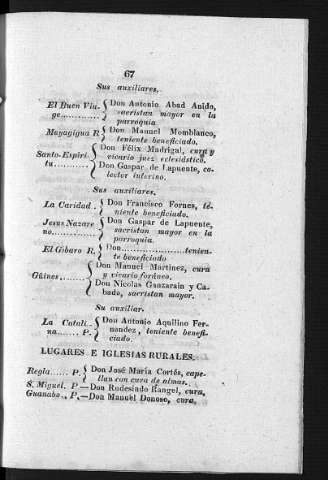 67
Sus auxiliares.
El Buen Via- { Don Antonio Abad Anido,
ge............. sacristan mayor en la
parroquia.
Mayagigua R. { Don Manuel Momblanco,
teniente beneficiado.
Santo-Espíri- { Don Félix Madrigal, cura y
tu............. vicario juez eclesiástico.
Don Gaspar de Lapuente, co-
lector interino.
Sus auxiliares.
La Caridad.. { Don Francisco Fornes, te-
niente beneficiado.
Jesus Nazare { Don Gaspar de Lapuente,
no............ sacristan mayor en la
parroquia.
El Gíbaro R. { Don...............tenien-
te beneficiado
Güines....... { Don Manuel Martinez, cura
y vicario foráneo.
Don Nicolas Ganzarain y Ca-
bado, sacristan mayor.
Su auxiliar.
La Catali- { Don Antonio Aquilino Fer-
na...... P. nandez, teniente benefi-
ciado.
LUGARES E IGLESIAS RURALES.
Regla...... P. { Don José María Cortés, cape-
llan con cura de almas.
S. Miguel. P.—Don Rudesiado Rangel, cura.
Guanabo., P.—Don Manuel Donoso, cura.